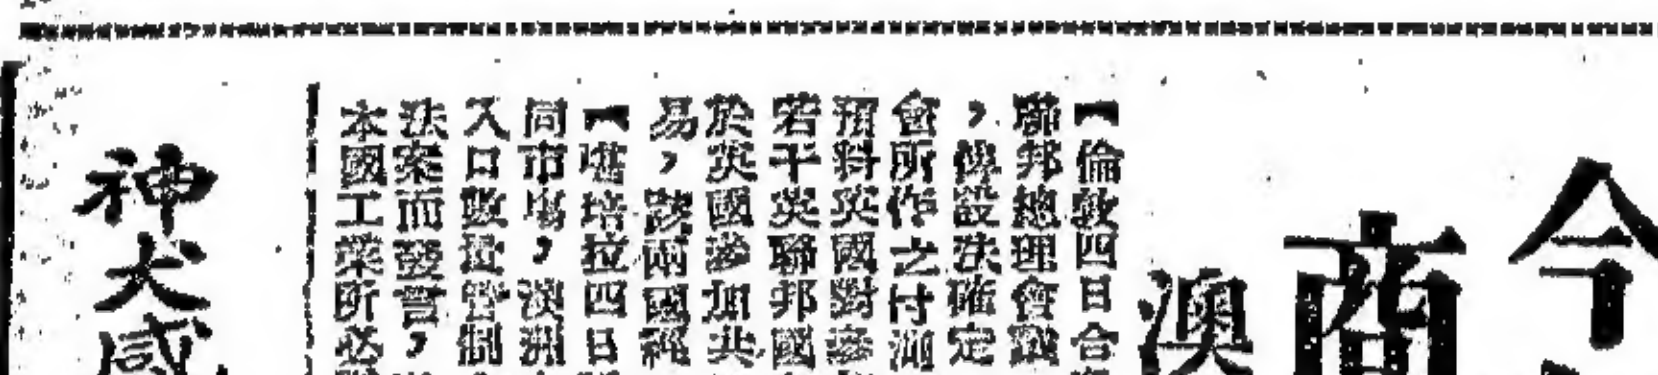 今
商
澳
【倫敦四日合
聯邦總理會議
，傳設法確定
會所作之討測
預料英國對參
若干英聯邦國
於英國參加共
易，該兩國經
【堪培拉四日
同市場，澳洲
入口數量管制
法案而發言，
本國工業所必
神犬